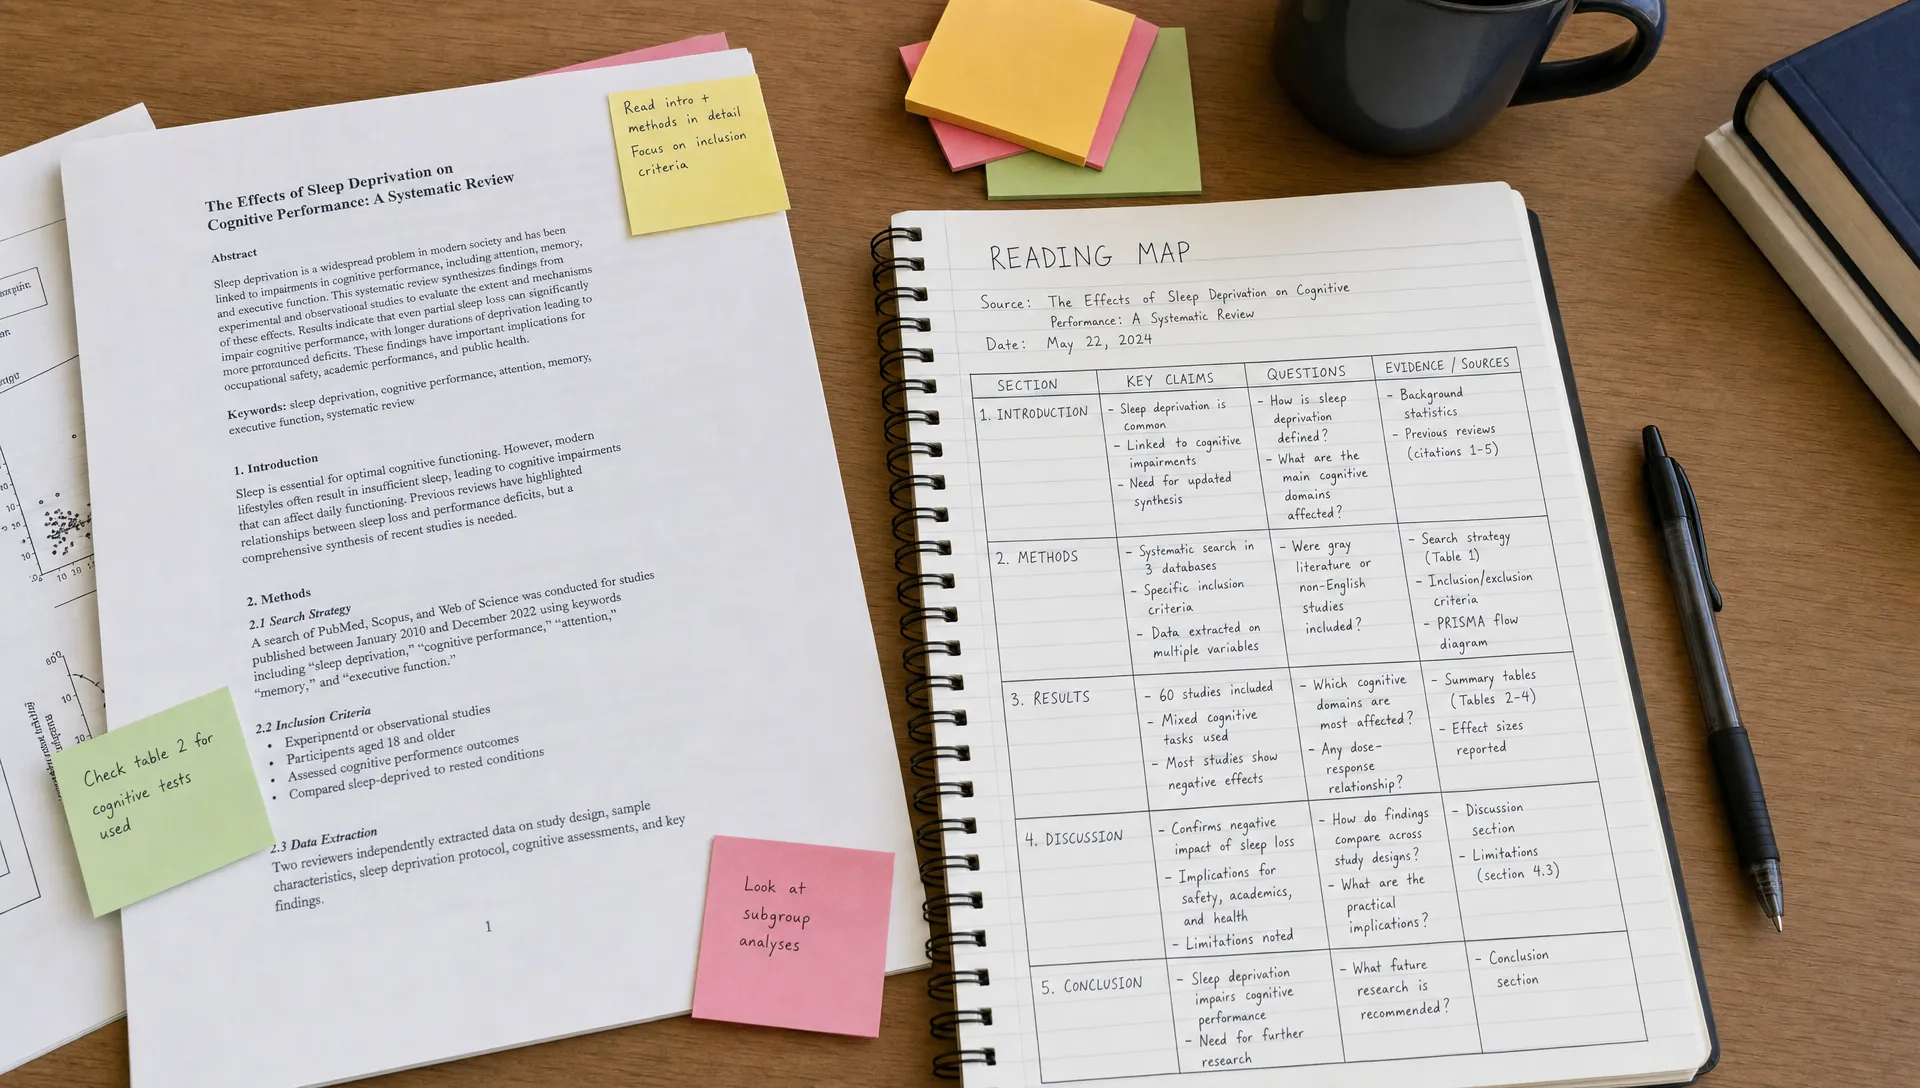 The Effects of Sleep Deprivation on
Cognitive Performance: A Systematic Review
Abstract
Sleep deprivation is a widespread problem in modern society and has been
linked to impairments in cognitive performance, including attention, memory,
and executive function. This systematic review synthesizes findings from
experimental and observational studies to evaluate the extent and mechanisms
of these effects. Results indicate that even partial sleep loss can significantly
impair cognitive performance, with longer durations of deprivation leading to
more deficits. These findings have important implications for
occupational safety, academic performance, and public health.
Keywords: sleep deprivation, cognitive performance, attention, memory,
executive function, systematic review
1. Introduction
Sleep is essential for optimal cognitive functioning. However, modern
lifestyles often result in insufficient sleep, leading to cognitive impairments
that can affect daily functioning. Previous reviews have highlighted
relationships between sleep loss and performance deficits, but a
comprehensive synthesis of recent studies is needed.
2. Methods
2.1 Search Strategy
A search of PubMed, Scopus, and Web of Science was conducted for studies
published between January 2010 and December 2022 using keywords
including “sleep deprivation,” “cognitive performance,” “attention,”
“memory,” and “executive function.”
2.2 Inclusion Criteria
• or observational studies
• Participants aged 18 and older
• Assessed cognitive performance outcomes
• Compared sleep-deprived to rested conditions
2.3 Data Extraction
Two reviewers independently extracted data on study design, sample
characteristics, sleep deprivation protocol, cognitive assessments, and key
findings.
1
Read intro +
methods in detail
Focus on inclusion
criteria
Check table 2 for
cognitive tests
used
Look at
subgroup
analyses
READING MAP
Source: The Effects of Sleep Deprivation on Cognitive
Performance: A Systematic Review
Date: May 22, 2024
SECTION KEY CLAIMS QUESTIONS EVIDENCE / SOURCES
1. INTRODUCTION
- Sleep deprivation is
common
- Linked to cognitive
impairments
- Need for updated
synthesis
- How is sleep
deprivation
defined?
- What are the
main cognitive
domains
affected?
- Background
statistics
- Previous reviews
(citations 1-5)
2. METHODS
- Systematic search in
3 databases
- Specific inclusion
criteria
- Data extracted on
multiple variables
- Were gray
literature or
non-English
studies
included?
- Search strategy
(Table 1)
- Inclusion/exclusion
criteria
- PRISMA flow
diagram
3. RESULTS
- 60 studies included
- Mixed cognitive
tasks used
- Most studies show
negative effects
- Which cognitive
domains are
most affected?
- Any dose-
response
relationship?
- Summary tables
(Tables 2-4)
- Effect sizes
reported
4. DISCUSSION
- Confirms negative
impact of sleep loss
- Implications for
safety, academics,
and health
- Limitations noted
- How do findings
compare across
study designs?
- What are the
practical
implications?
- Discussion
section
- Limitations
(section 4.3)
5. CONCLUSION
- Sleep deprivation
impairs cognitive
performance
- Need for further
research
- What future
research is
recommended?
- Conclusion
section